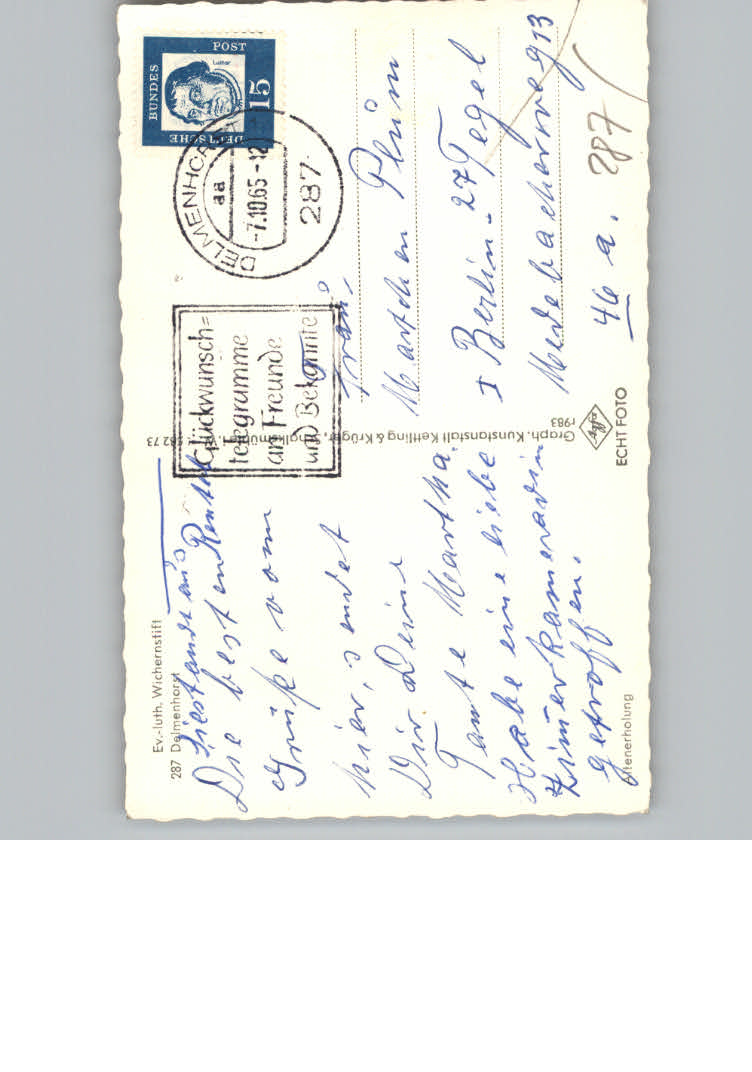 Ev.-luth. Wichernstift
287 Delmenhorst
Die besten
Grüße vom
hier, sendet
Dir Deine
Tante Martha.
Habe eine liebe
Zimerkameradin
getroffen.
Altenerholung
Graph. Kunstanstalt Kettling & Krüger,
r983
Agfa
ECHT FOTO
DEUTSCHE
BUNDES
POST
Luther
15
DELMENHORST
aa
-7.10.65-12
287
Glückwunsch=
telegramme
an Freunde
und Bekannte
Frau
Martchen Plüm
1 Berlin - 27 Tegel
Medebacherweg 13
46 a.
287